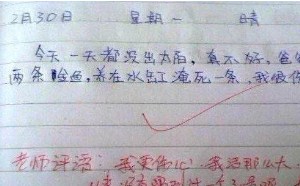 2月30日 星期一 晴
今天一天都没出太阳,真不好,爸
两条鱼,养在水缸淹死一条,我很伤
老师评语:我更伤心!我活那么大